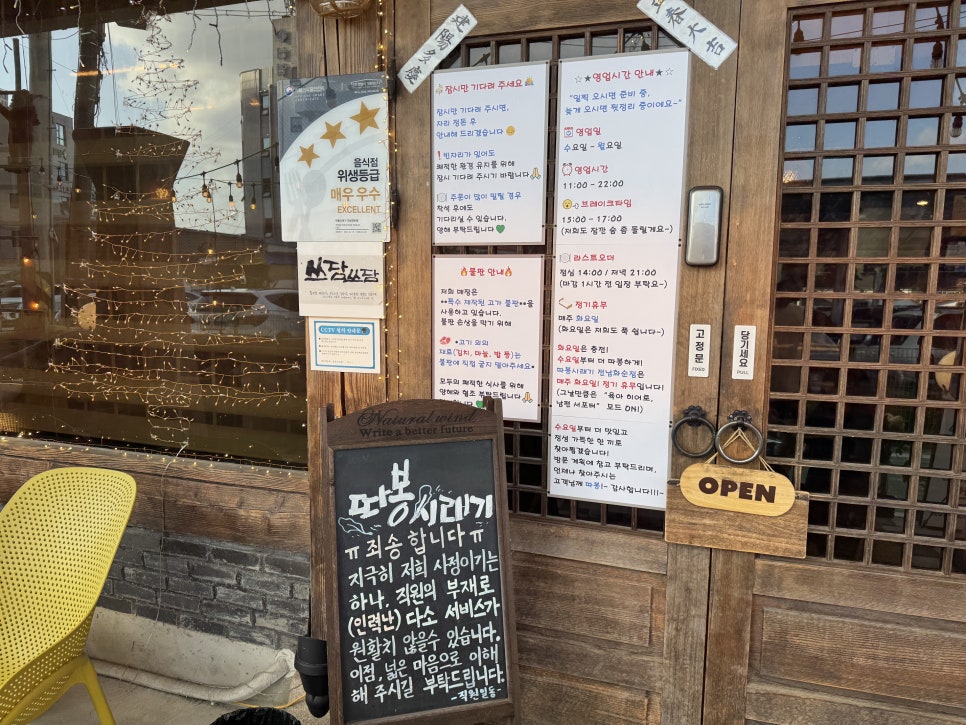 음식점
위생등급
매우 우수
EXCELLENT
쓰담쓰담
잠시만 기다려 주세요
잠시만 기다려 주시면,
자리 정돈 후
안내해 드리겠습니다
❗빈자리가 있어도
쾌적한 환경 유지를 위해
잠시 기다려 주시기 바랍니다🙏
🍽 주문이 많이 밀릴 경우
착석 후에도
기다리실 수 있습니다.
양해 부탁드립니다💚
🔥불판 안내🔥
저희 매장은
**특수 제작된 고가 불판**을
사용하고 있습니다.
불판 손상을 막기 위해
*고기 외의
재료(김치, 마늘, 밥 등)는
불판에 직접 굽지 말아주세요*
모두의 쾌적한 식사를 위해
양해와 협조 부탁드립니다🙏
☆★영업시간 안내★☆
"일찍 오시면 준비 중,
늦게 오시면 뒷정리 중이에요~"
영업일
수요일 ~ 월요일
영업시간
11:00 ~ 22:00
브레이크타임
15:00 ~ 17:00
(저희도 잠깐 숨 좀 돌릴게요~)
라스트오더
점심 14:00 / 저녁 21:00
(마감 1시간 전 입장 부탁요~)
정기휴무
매주 화요일
(화요일은 저희도 푹 쉽니다~)
화요일은 충전!
수요일부터 더 따봉하게!
따봉시래기 전남화순점은
매주 화요일! 정기 휴무입니다!
(그날만큼은 "육아 히어로,
남편 서포터" 모드 ON!)
수요일부터 더 맛있고
정성 가득한 한 끼로
찾아뵙겠습니다!
방문 계획에 참고 부탁드리며,
언제나 찾아주시는
고객님께 따봉!~ 감사합니다!!!~
고정문
FIXED
당기세요
PULL
OPEN
Natural wind
Write a better future
따봉시래기
ㅠ죄송합니다ㅠ
지극히 저희 사정이기는
하나, 직원의 부재로
(인력난) 다소 서비스가
원활치 않을수 있습니다.
이점, 넓은 마음으로 이해
해 주시길 부탁드립니다.
-직원일동-